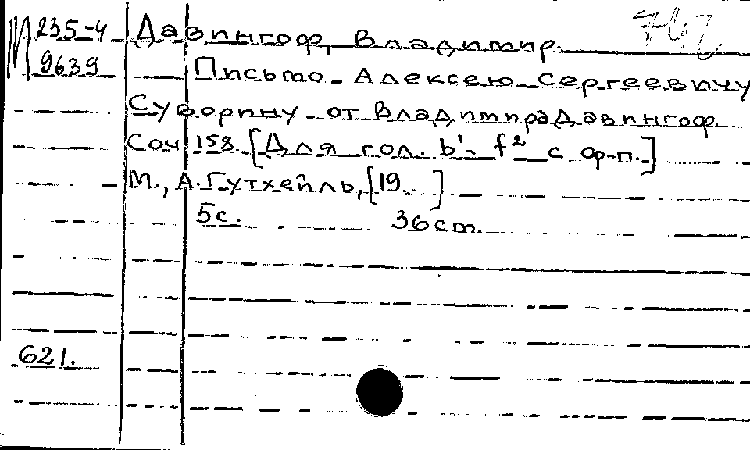 М 235-4 Давингоф, Владимир.
9639 Письмо Алексею Сергеевичу
Суворину от Владимира Давингоф.
Соч 158. [Для гол. b¹- f² с ф-п.]
М., А. Гутхейль, [19 ]
5с. 36 cm.
621.